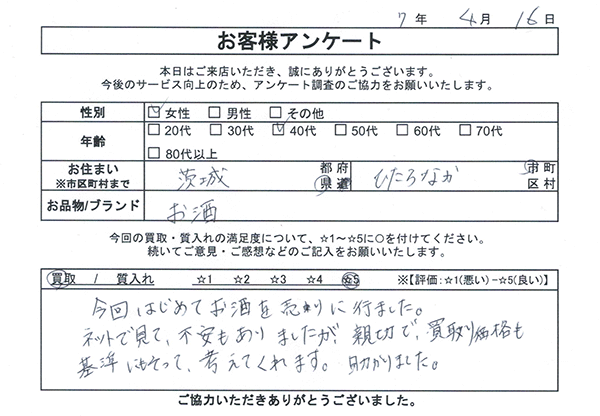 7年 4月 16日
お客様アンケート
本日はご来店いただき、誠にありがとうございます。
今後のサービス向上のため、アンケート調査のご協力をお願いいたします。
性別 ☑女性 □男性 □その他
年齢 □20代 □30代 ☑40代 □50代 □60代 □70代
□80代以上
お住まい
※市区町村まで 茨城 都府県道 ひたちなか 市町区村
お品物/ブランド お酒
今回の買取・質入れの満足度について、☆1～☆5に○を付けてください。
続いてご意見・ご感想などのご記入をお願いいたします。
買取 / 質入れ ☆1 ☆2 ☆3 ☆4 ☆5 ※【評価:☆1(悪い)－☆5(良い)】
今回はじめてお酒を売りに行ました。
ネットで見て、不安もありましたが親切で、買取り価格も
基準にもそって、考えてくれます。助かりました。
ご協力いただきありがとうございました。